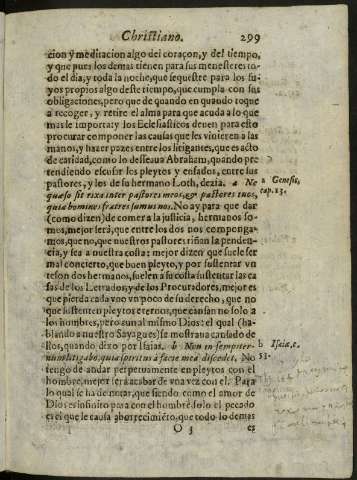 Christiano. 299
cion y meditacion algo del coraçon, y del tiempo,
y que pues los demas tienen para sus menesteres to-
do el dia, y toda la noche, que sequestre para los su-
yos propios algo deste tiempo, que cumpla con sus
obligaciones, pero que de quando en quando toque
a recoger, y retire el alma para que acuda a lo que
mas le importa: y los Eclesiasticos deuen para esto
procurar componer las causas que les vinieren a las
manos, y hazer pazes entre los litigantes, que es acto
de caridad, como lo desseaua Abraham, quando pre
tendiendo escusar los pleytos y enfados, entre sus
pastores, y los de su hermano Loth, dezia. a Ne
quæso sit rixa inter pastores meos, & pastores tuos,
quia homines fratres sumus nos. No ay para que dar
(como dizen) de comer a la justicia, hermanos so-
mos, mejor será, que entre los dos nos componga-
mos, que no, que nuestros pastores riñan la penden-
cia, y sea a nuestra costa: mejor dizen que suele ser
mal concierto, que buen pleyto, y por sustentar vn
teson dos hermanos, suelen a su costa sustentar las ca
sas de los Letrados, y de los Procuradores, mejor es
que pierda cada vno vn poco de su derecho, que no
que sustenten pleytos eternos, que cansan no solo a
los hombres, pero aun al mismo Dios: el qual (ha-
blando a nuestro Sayagues) se mostraua cansado de-
llos, quando dixo por Isaias. b Non in sempiter-
num litigabo, quia spiritus à facie mea discedet. No
tengo de andar perpetuamente en pleytos con el
hombre, mejor será acabar de vna vez con el. Para
lo qual se ha de notar, que siendo como el amor de
Dios es infinito para con el hombre, solo el pecado
es el que le causa aborrecimiẽto, que todo lo demas
O 3 es
a Genesis,
cap. 13.
b Isaiæ, c.